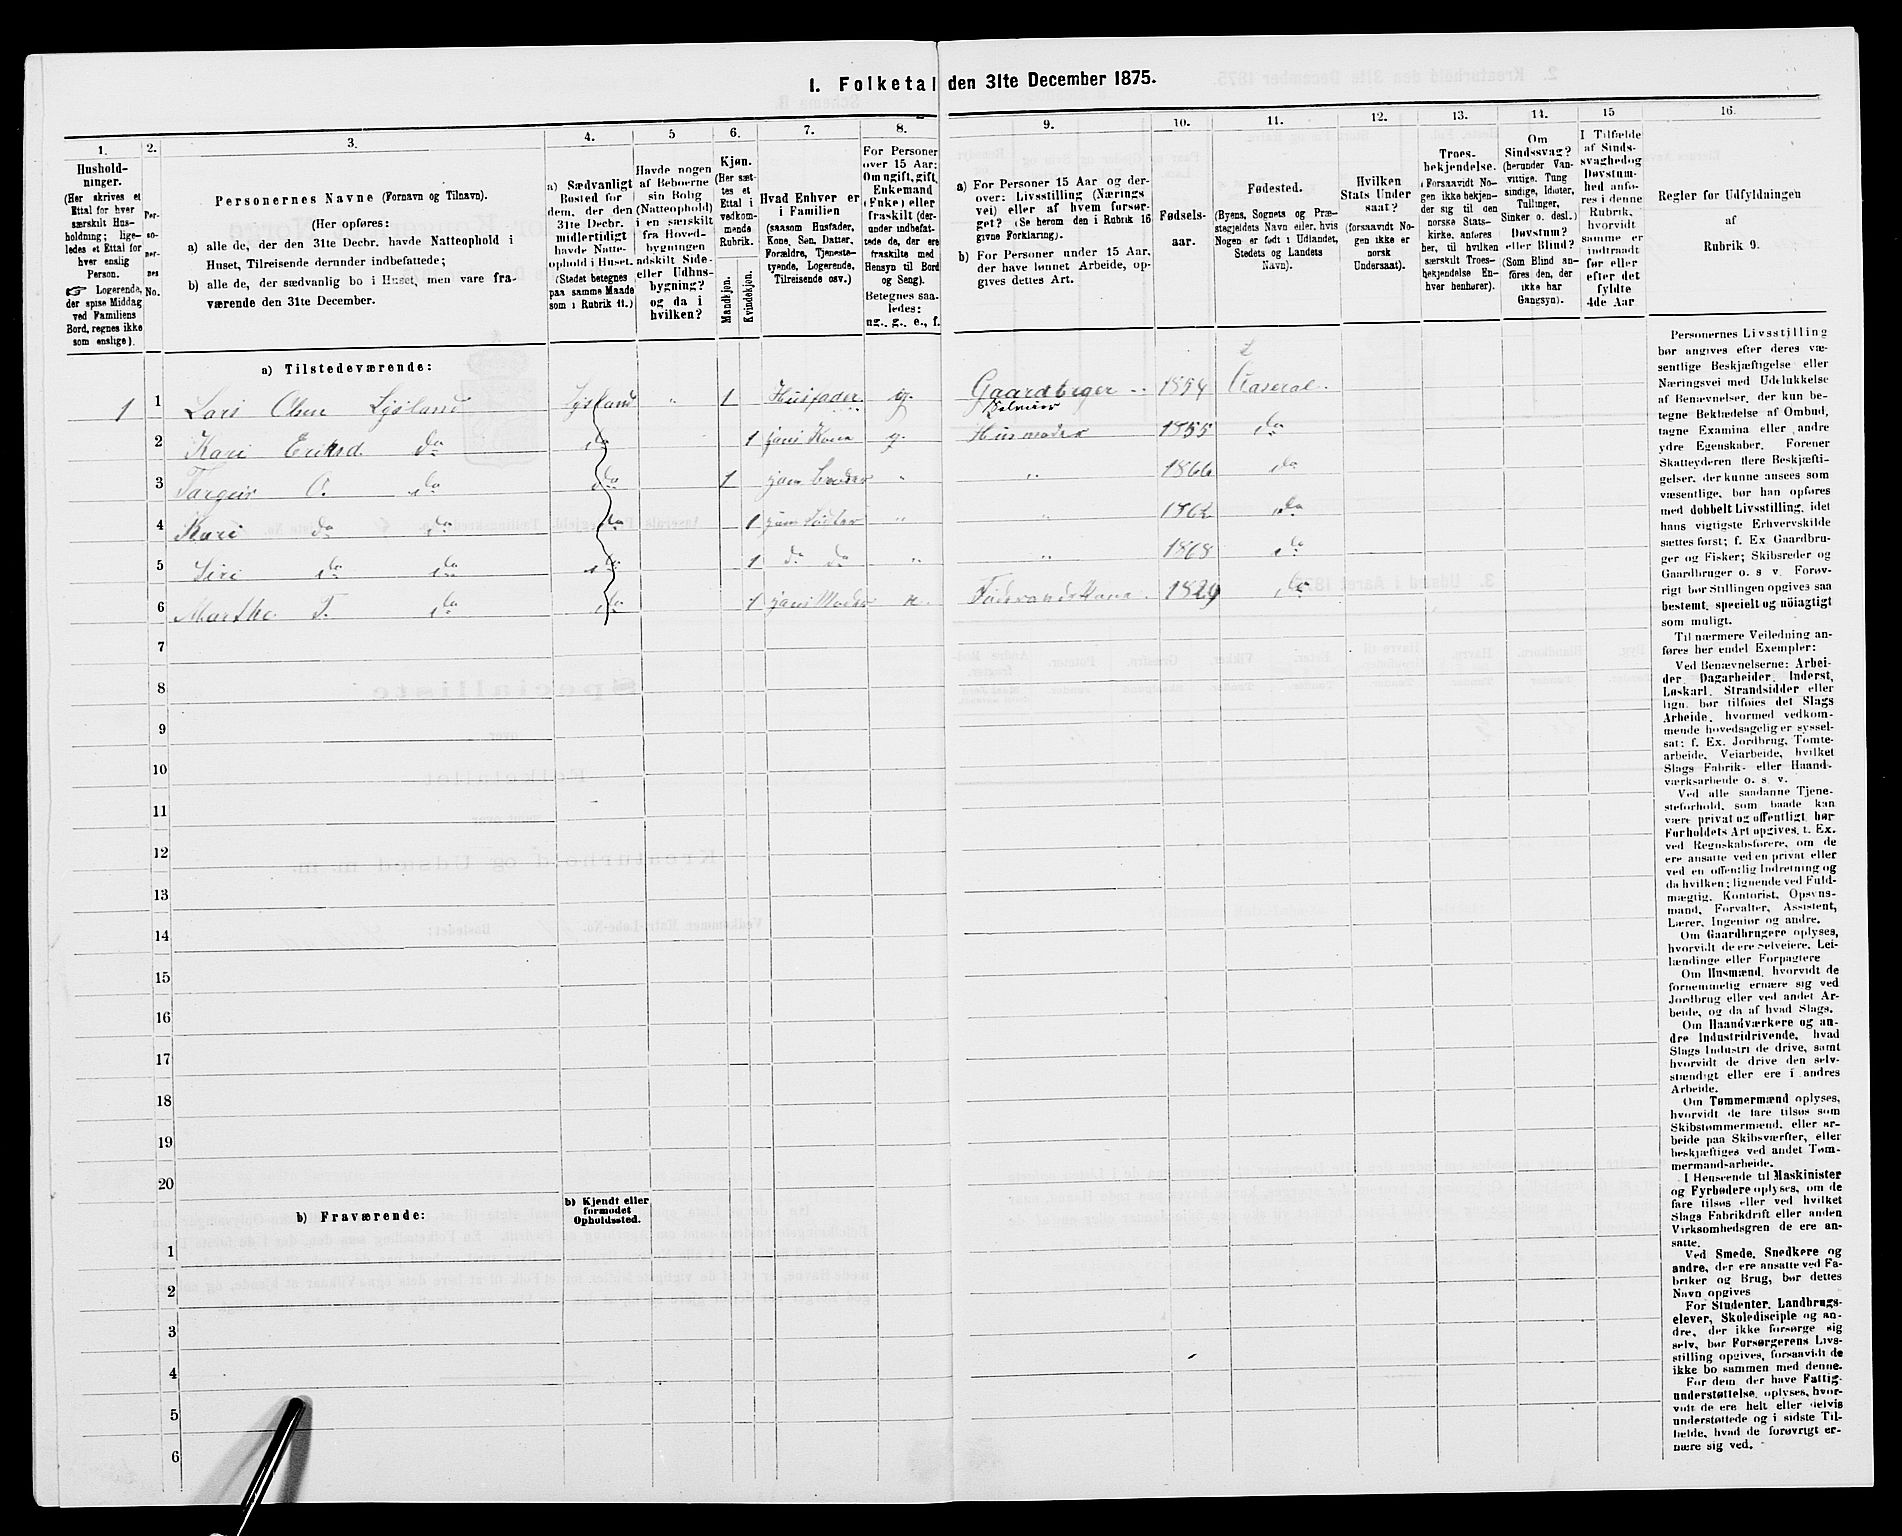 I. Folketal den 31te December 1875.
1.
Hushold-
ninger.
(Her skrives et
Ettal for hver
særskilt Hus-
holdning; lige-
ledes et Ettal for
hver enslig
Person.
☞ Logerende,
der spise Middag
ved Familiens
Bord, regnes ikke
som enslige).
2.
Per-
so-
ner-
nes
No.
3.
Personernes Navne (Fornavn og Tilnavn).
(Her opføres:
a) alle de, der den 31te Decbr. havde Natteophold i
Huset, Tilreisende derunder indbefattede;
b) alle de, der sædvanlig bo i Huset, men vare fra-
værende den 31te December.
4.
a) Sædvanligt
Bosted for
dem, der den
31te Decbr.
midlertidigt
havde Natte-
ophold i Huset.
(Stedet betegnes
paa samme Maade
som i Rubrik 11.)
5
Havde nogen
af Beboerne
sin Bolig
(Natteophold)
i en særskilt
fra Hoved-
bygningen
adskilt Side-
eller Udhus-
bygning?
og da i
hvilken?
6.
Kjøn.
(Her sæt-
tes et
Ettal i
vedkom-
mende
Rubrik.
Mandkjøn.
Kvindekjøn.
7.
Hvad Enhver er
i Familien
(saasom Husfader,
Kone, Søn, Datter,
Forældre, Tjeneste-
tyende, Logerende,
Tilreisende osv.)
8.
For Personer
over 15 Aar:
Om ugift, gift,
Enkemand
(Enke) eller
fraskilt (der-
under indbefat-
tede de, der ere
fraskilte med
Hensyn til Bord
og Seng).
Betegnes saa-
ledes:
ug., g., e., f.
9.
a) For Personer 15 Aar og der-
over: Livsstilling (Nærings-
vei) eller af hvem forsør-
get? (Se herom den i Rubrik 16
givne Forklaring).
b) For Personer under 15 Aar,
der have lønnet Arbeide, op-
gives dettes Art.
10.
Fødsels-
aar.
11.
Fødested.
(Byens, Sognets og Præ-
stegjeldets Navn eller, hvis
Nogen er født i Udlandet,
Stedets og Landets
Navn).
12.
Hvilken
Stats Under
saat?
(forsaavidt No-
gen ikke er
norsk
Undersaat).
13.
Troes-
bekjendelse.
(Forsaavidt No-
gen ikke bekjen-
der sig til den
norske Stats-
kirke, anføres
her, til hvilken
særskilt Troes-
bekjendelse En-
hver henhører).
14.
Om
Sindssvag?
(herunder Van-
vittige, Tung
sindige, Idioter,
Tullinger,
Sinker o. desl.)
Døvstum?
eller Blind?
(Som Blind an-
føres den, der
ikke har
Gangsyn).
15
I Tilfælde
af Sinds-
svaghed og
Døvstum-
hed anfø-
res i denne
Rubrik,
hvorvidt
samme er
indtraadt
før eller
efter det
fyldte
4de Aar
16.
Regler for Udfyldningen
af
Rubrik 9.
a) Tilstedeværende:
1 1 Lars Olsen Lysland Lysland " 1 Husfader g. Gaardbruger Selveier 1854 Aaseral
2 Kari Eriksd. do do 1 hans Kone g. Husmoder 1855 do
3 Targeir O. do do 1 hans broder " " 1866 do
4 Kari do do do 1 hans Søster " " 1862 do
5 Siri do do do 1 do do " " 1868 do
6 Marthe T. do do 1 hans Moder Føderaadskone 1829 do
7
8
9
10
11
12
13
14
15
16
17
18
19
20
b) Fraværende:
b) Kjendt eller
formodet
Opholdssted.
1
2
3
4
5
6
Personernes Livsstilling
bør angives efter deres væ-
sentlige Beskjæftigelse eller
Næringsvei med Udelukkelse
af Benævnelser, der kun be-
tegne Beklædelse af Ombud,
tagne Examina eller andre
ydre Egenskaber. Forener
Skatteyderen flere Beskjæfti-
gelser, der kunne ansees som
væsentlige, bør han opføres
med dobbelt Livsstilling, idet
hans vigtigste Erhvervskilde
sættes først; f. Ex. Gaardbru-
ger og Fisker; Skibsreder og
Gaardbruger o. s v. Forøv-
rigt bør Stillingen opgives saa
bestemt, specielt og nöiagtigt
som muligt.
Til nærmere Veiledning an-
føres her endel Exempler:
Ved Benævnelserne: Arbei-
der, Dagarbeider, Inderst,
Løskarl, Strandsidder eller
lign. bør tilføies det Slags
Arbeide, hvormed vedkom-
mende hovedsagelig er syssel-
sat; f. Ex. Jordbrug, Tomte-
arbeide, Veiarbeide, hvilket
Slags Fabrik- eller Haand-
værksarbeide o. s. v.
Ved alle saadanne Tjene-
steforhold, som baade kan
være privat og offentligt, bør
Forholdets Art opgives, t. Ex.
ved Regnskabsførere, om de
ere ansatte ved en privat eller
ved en offentlig Indretning og
da hvilken; lignende ved Fuld-
mægtig, Kontorist, Opsyns-
mand, Forvalter, Assistent,
Lærer, Ingeniør og andre.
Om Gaardbrugere oplyses,
hvorvidt de ere Selveiere, Lei-
lændinge eller Forpagtere
Om Husmænd, hvorvidt de
fornemmelig ernære sig ved
Jordbrug eller ved andet Ar-
beide, og da af hvad Slags.
Om Haandværkere og an-
dre Industridrivende, hvad
Slags Industri de drive, samt
hvorvidt de drive den selv-
stændigt eller ere i andres
Arbeide.
Om Tømmermænd oplyses,
hvorvidt de fare tilsøs som
Skibstømmermænd, eller ar-
beide paa Skibsværfter, eller
beskjæftiges ved andet Tøm-
mermandsarbeide.
I Henseende til Maskinister
og Fyrbødere oplyses, om de
fare tilsøs eller ved hvilket
Slags Fabrikdrift eller anden
Virksomhedsgren de ere an-
satte.
Ved Smede, Snedkere og
andre, der ere ansatte ved Fa-
briker og Brug, bør dettes
Navn opgives
For Studenter, Landbrugs-
elever, Skoledisciple og an-
dre, der ikke forsørge sig
selv, bør Forsørgerens Livs-
stilling opgives, forsaavidt de
ikke bo sammen med denne.
For dem, der have Fattig-
understøttelse, oplyses, hvor-
vidt de ere helt eller delvis
understøttede og i sidste Til-
fælde, hvad de forøvrigt er-
nære sig ved.